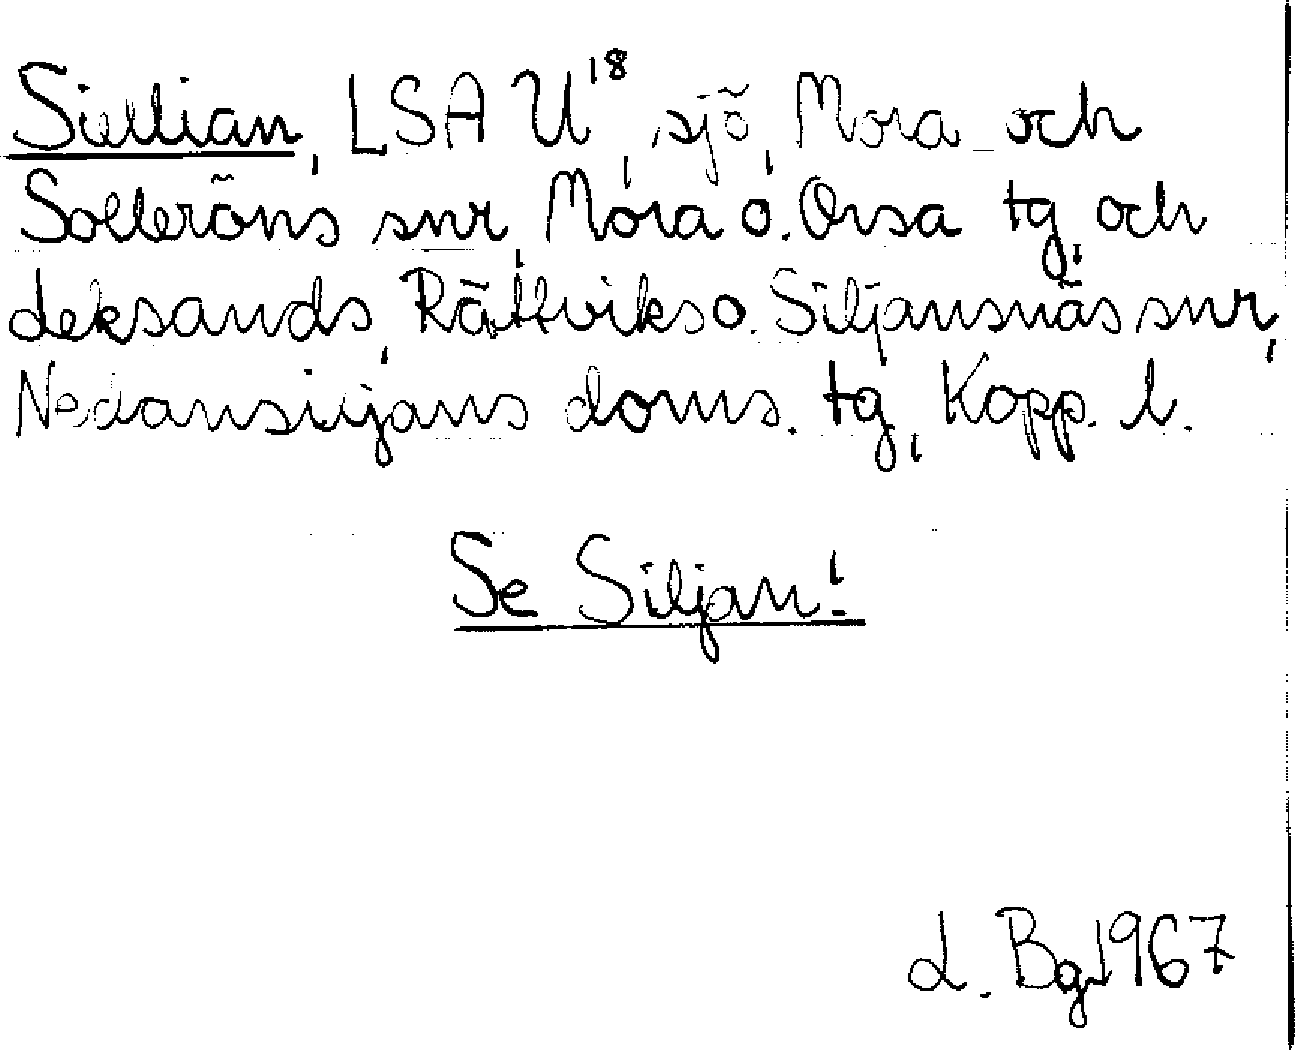 Siellian, LSA U18, sjö, Mora och
Solleröns snr, Mora o. Orsa tg, och
Leksands, Rättviks o. Siljansnäs snr,
Nedansiljans doms. tg, Kopp. l.
Se Siljan!
L. Bg 1967